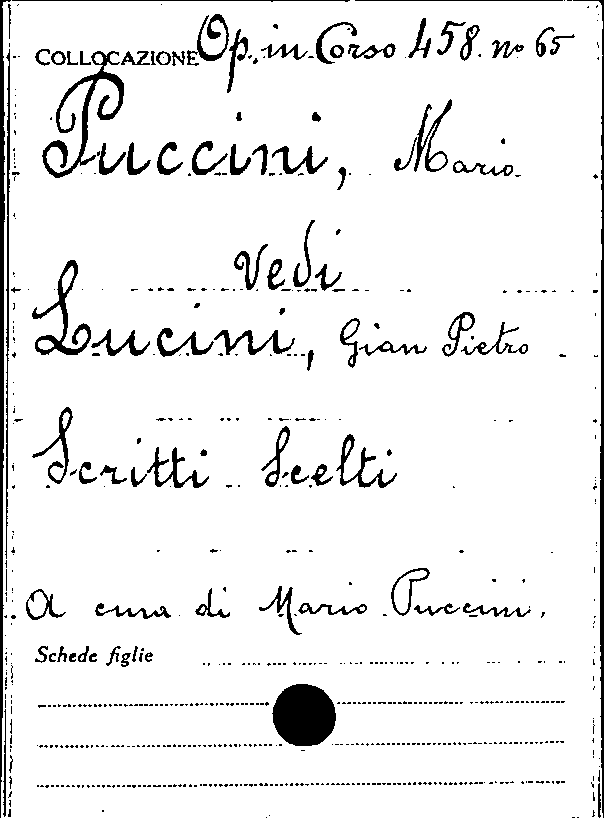 COLLOCAZIONE Op. in Corso 458. no 65
Puccini, Mario
vedi
Lucini, Gian Pietro
Scritti Scelti
A cura di Mario Puccini.
Schede figlie